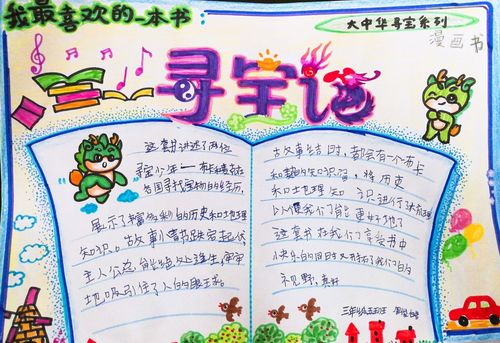 我最喜欢的一本书
大中华寻宝系列
漫画书
寻宝记
这套书讲述了两位
寻宝少年一布卡
各国寻找宝物的经历,
展示了丰富多彩的历史和地理
知识。故事小情节跌宕起伏
主人公总能绝处逢生,牢牢
地吸引住了人的眼球。
故事结时,都会有一个布卡
和的知识, 将历史
和地理知识进行梳理
以便我们能更好地了
这套书在我们享受书中
快乐的同时又开拓了我们的
视野,真好
三年级五班